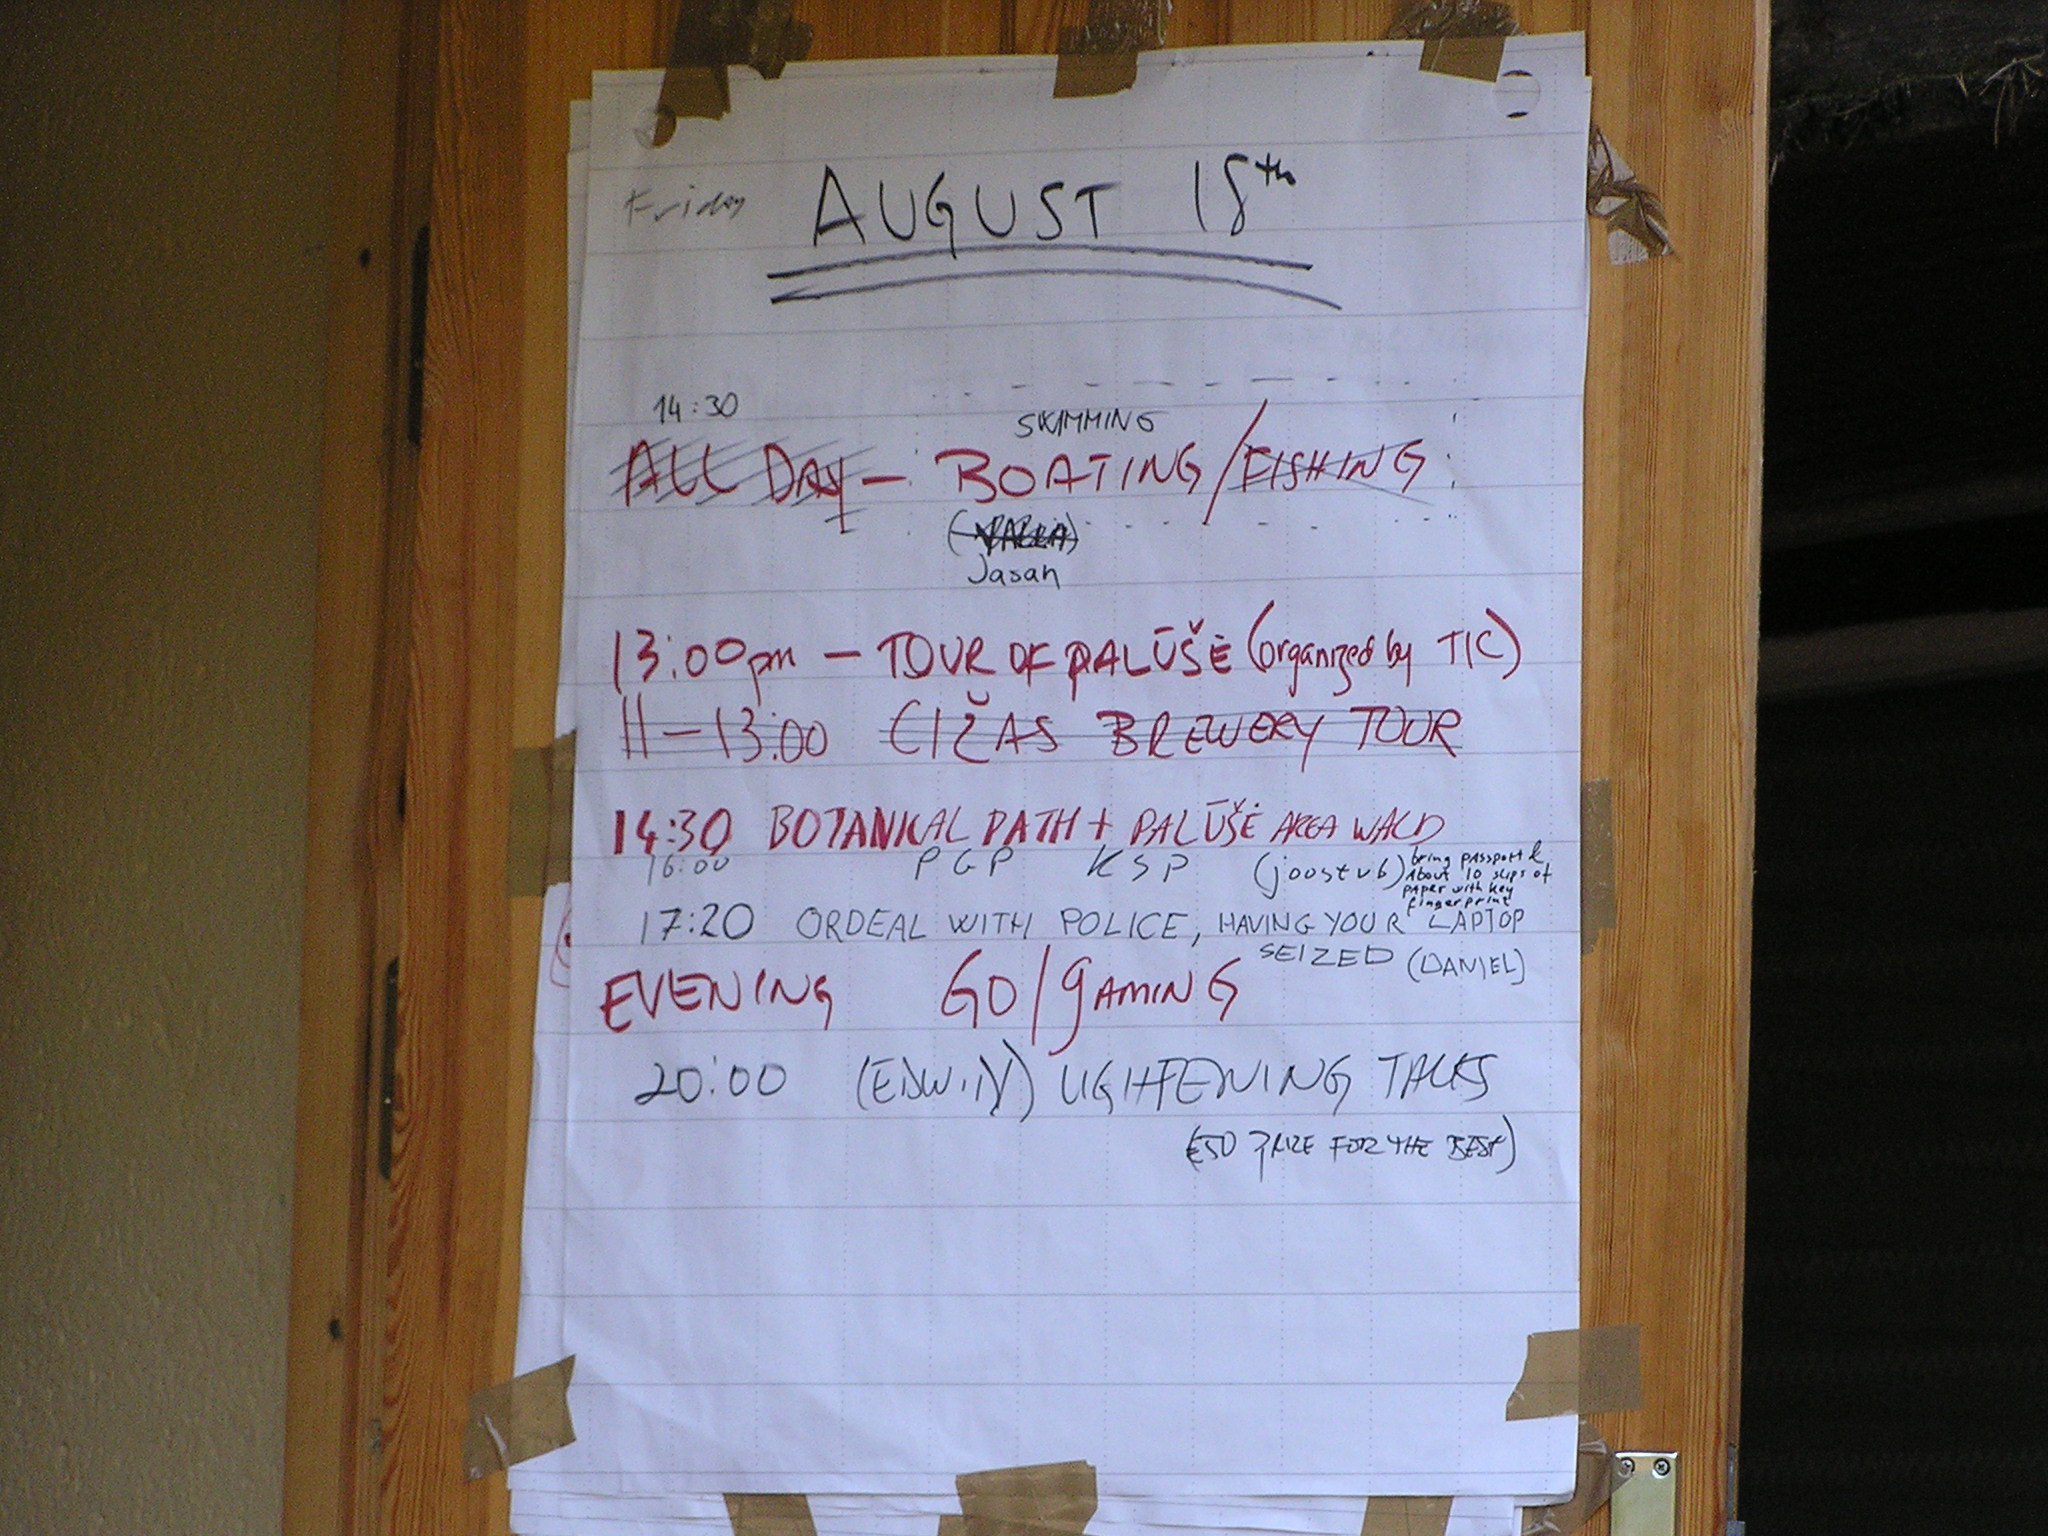 Friday AUGUST 18th
14:30
SWIMMING
ALL DAY - BOATING/FISHING
Jasan
13:00pm - TOUR OF PALŪŠĖ (organized by TIC)
11-13:00 ČIŽAS BREWERY TOUR
14:30 BOTANICAL PATH + PALŪŠĖ AREA WALD
16:00 PGP KSP (joostvb) bring passport &
About 10 slips of
paper with key
fingerprint
17:20 ORDEAL WITH POLICE, HAVING YOUR LAPTOP
SEIZED (DANIEL)
EVENING GO/gAMING
20:00 (EDWIN) LIGHTENING TALKS
(€50 PRIZE FOR THE BEST)